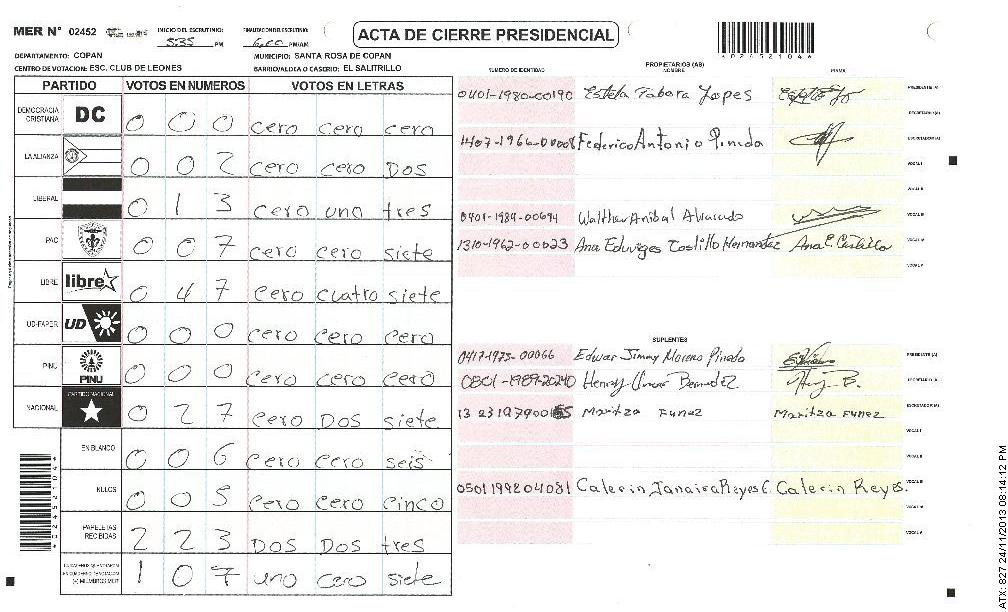 MER N° 02452
INICIO DEL ESCRUTINIO: 5:35 PM
FINALIZACION DEL ESCRUTINIO: PM/AM
ACTA DE CIERRE PRESIDENCIAL
DEPARTAMENTO: COPAN
MUNICIPIO: SANTA ROSA DE COPAN
CENTRO DE VOTACION: ESC. CLUB DE LEONES
BARRIO/ALDEA O CASERIO: EL SALITRILLO
PARTIDO VOTOS EN NUMEROS VOTOS EN LETRAS
DEMOCRACIA CRISTIANA DC 0 0 0 cero cero cero
LA ALIANZA 0 0 2 cero cero DOS
LIBERAL 0 1 3 cero uno tres
PAC 0 0 7 cero cero siete
LIBRE libre 0 4 7 cero cuatro siete
UD-FAPER UD 0 0 0 cero cero cero
PINU PINU 0 0 0 cero cero cero
NACIONAL PARTIDO NACIONAL 0 2 7 cero DOS siete
EN BLANCO 0 0 6 cero cero seis
NULOS 0 0 5 cero cero cinco
PAPELETAS RECIBIDAS 2 2 3 DOS DOS tres
(+) MIEMBROS MER 1 0 7 uno cero siete
NUMERO DE IDENTIDAD
PROPIETARIOS (AS)
NOMBRE
FIRMA
0401-1980-00190 Estela Tabora Lopes PRESIDENTE (A)
SECRETARIO (A)
1407-1966-00008 Federico Antonio Pineda ESCRUTADOR (A)
VOCAL I
VOCAL II
0401-1984-00694 Walther Anibal Alvarado VOCAL III
1310-1962-00023 Ana Eduviges Castillo Hernandez Ana E. Castillo VOCAL IV
VOCAL V
SUPLENTES
0417-1975-00066 Edwar Jimmy Moreno Pineda PRESIDENTE (A)
0801-1989-20240 Henry Omar Bermudez SECRETARIO (A)
Maritza Funez Maritza Funez ESCRUTADOR (A)
VOCAL I
VOCAL II
0501199204081 Calerin Janaira Reyes C. Calerin Reyes. VOCAL III
VOCAL IV
VOCAL V
ATX: 827 24/11/2013 08:14:12 PM